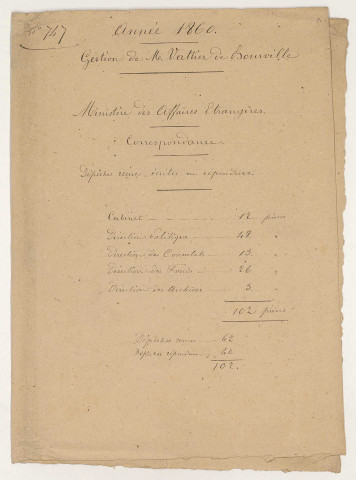 No 747
Année 1860.
Gestion de Mr Vattier de Bourville
Ministère des Affaires Etrangères.
Correspondance.
Dépêches reçues, écrites ou répondues.
Cabinet 12 pièces
Direction Politique 48 "
Direction des Consulats 13 "
Direction des Fonds 26 "
Direction des Archives 3 "
102 pièces
Dépêches reçues 62
Dépêches répondues
102.